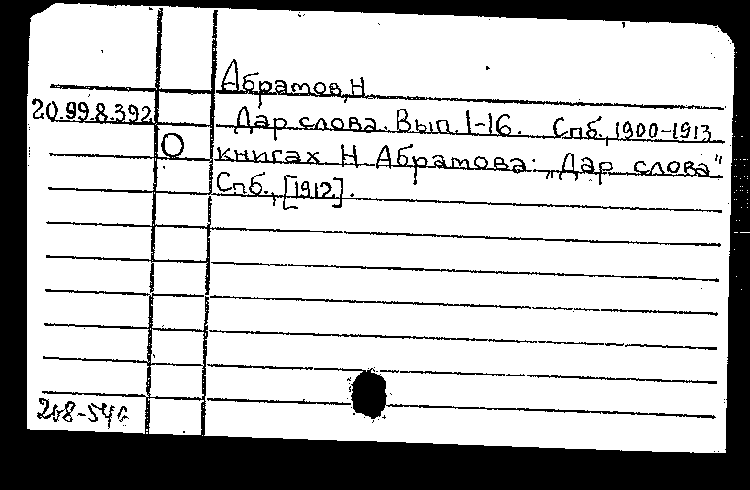 Абрамов, Н
20.99.8.392
Дар слова. Вып. 1-16. Спб., 1900-1913
О
книгах Н Абрамова: „Дар слова"
Спб., [1912].